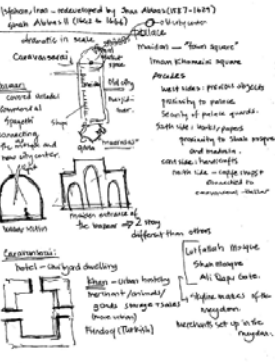 Isfahan, Iran - redeveloped by Shah Abbas I (1587-1629)
Shah Abbas II (1642 to 1666)
dramatic in scale
palace
Caravanserai
maidan — "town square"
Imam Khomeini square
Arcades
west side: precious objects
proximity to palace
security of palace guards.
south side: books/papers
proximity to Shah mosque
and madrasa.
east side: handicrafts
north side - coffee shops
connected to
bazaar
covered
commercial
connecting
the mosque and
new city center.
Old city
Shops
qibla
light
maidan entrance of
the bazaar → 2 story
different than others
Caravanserai:
hotel - courtyard dwelling
Khan - urban hostelry
merchant/animals/
goods storage + sales
(more urban)
(Turkish)
Lutfallah Mosque
Shah Mosque
Ali Qapu Gate.
→ skyline makes of the
meydan.
Merchants set up in the
meydan.